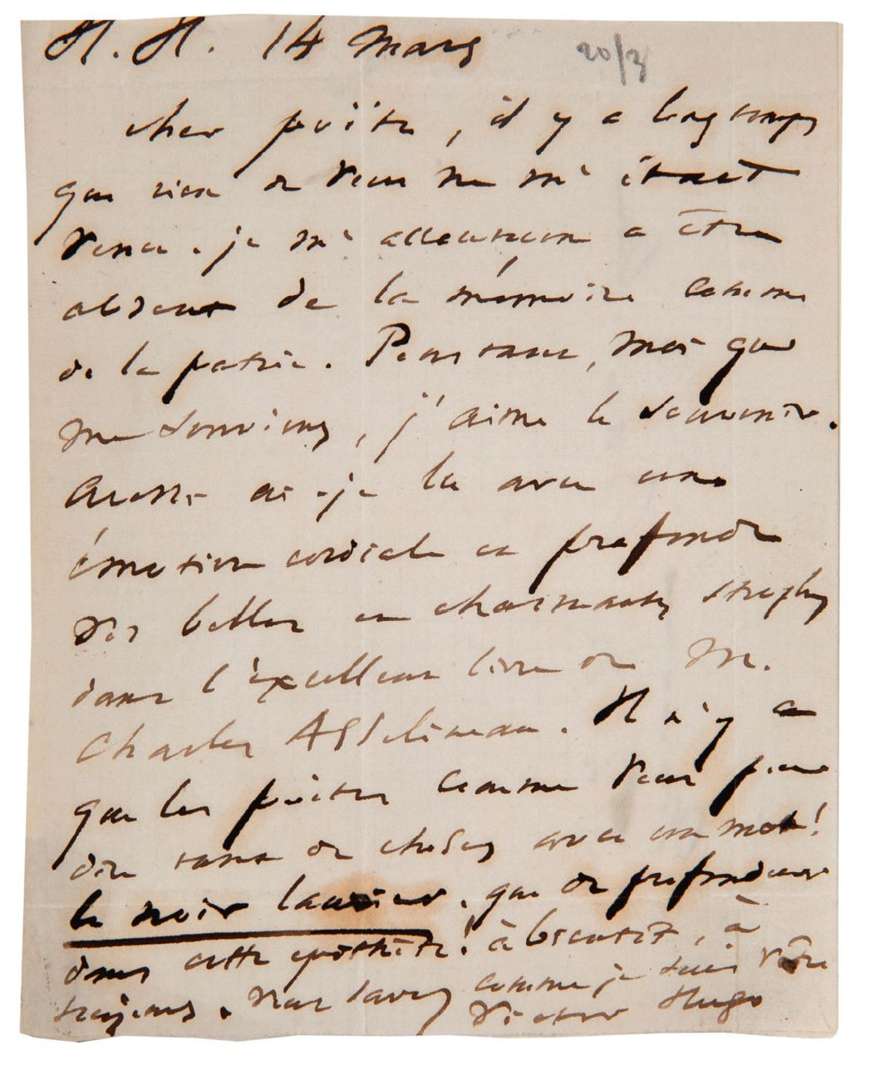 H. H. 14 mars
20/3
cher poëte, il y a longtemps
que rien de vous ne m'était
venu. je m'accoutume à être
absent de la mémoire comme
de la patrie. Pourtant, moi qui
me souviens, j'aime le souvenir.
Aussi ai-je lu avec une
émotion cordiale et profonde
vos belles et charmantes strophes
dans l'excellent livre de M.
Charles Asselineau. Il n'y a
que les poëtes comme vous pour
dire tant de choses avec un mot!
le noir laurier. que de profondeur
dans cette épithète! à bientôt, à
toujours. vous savez comme je suis vôtre
Victor Hugo